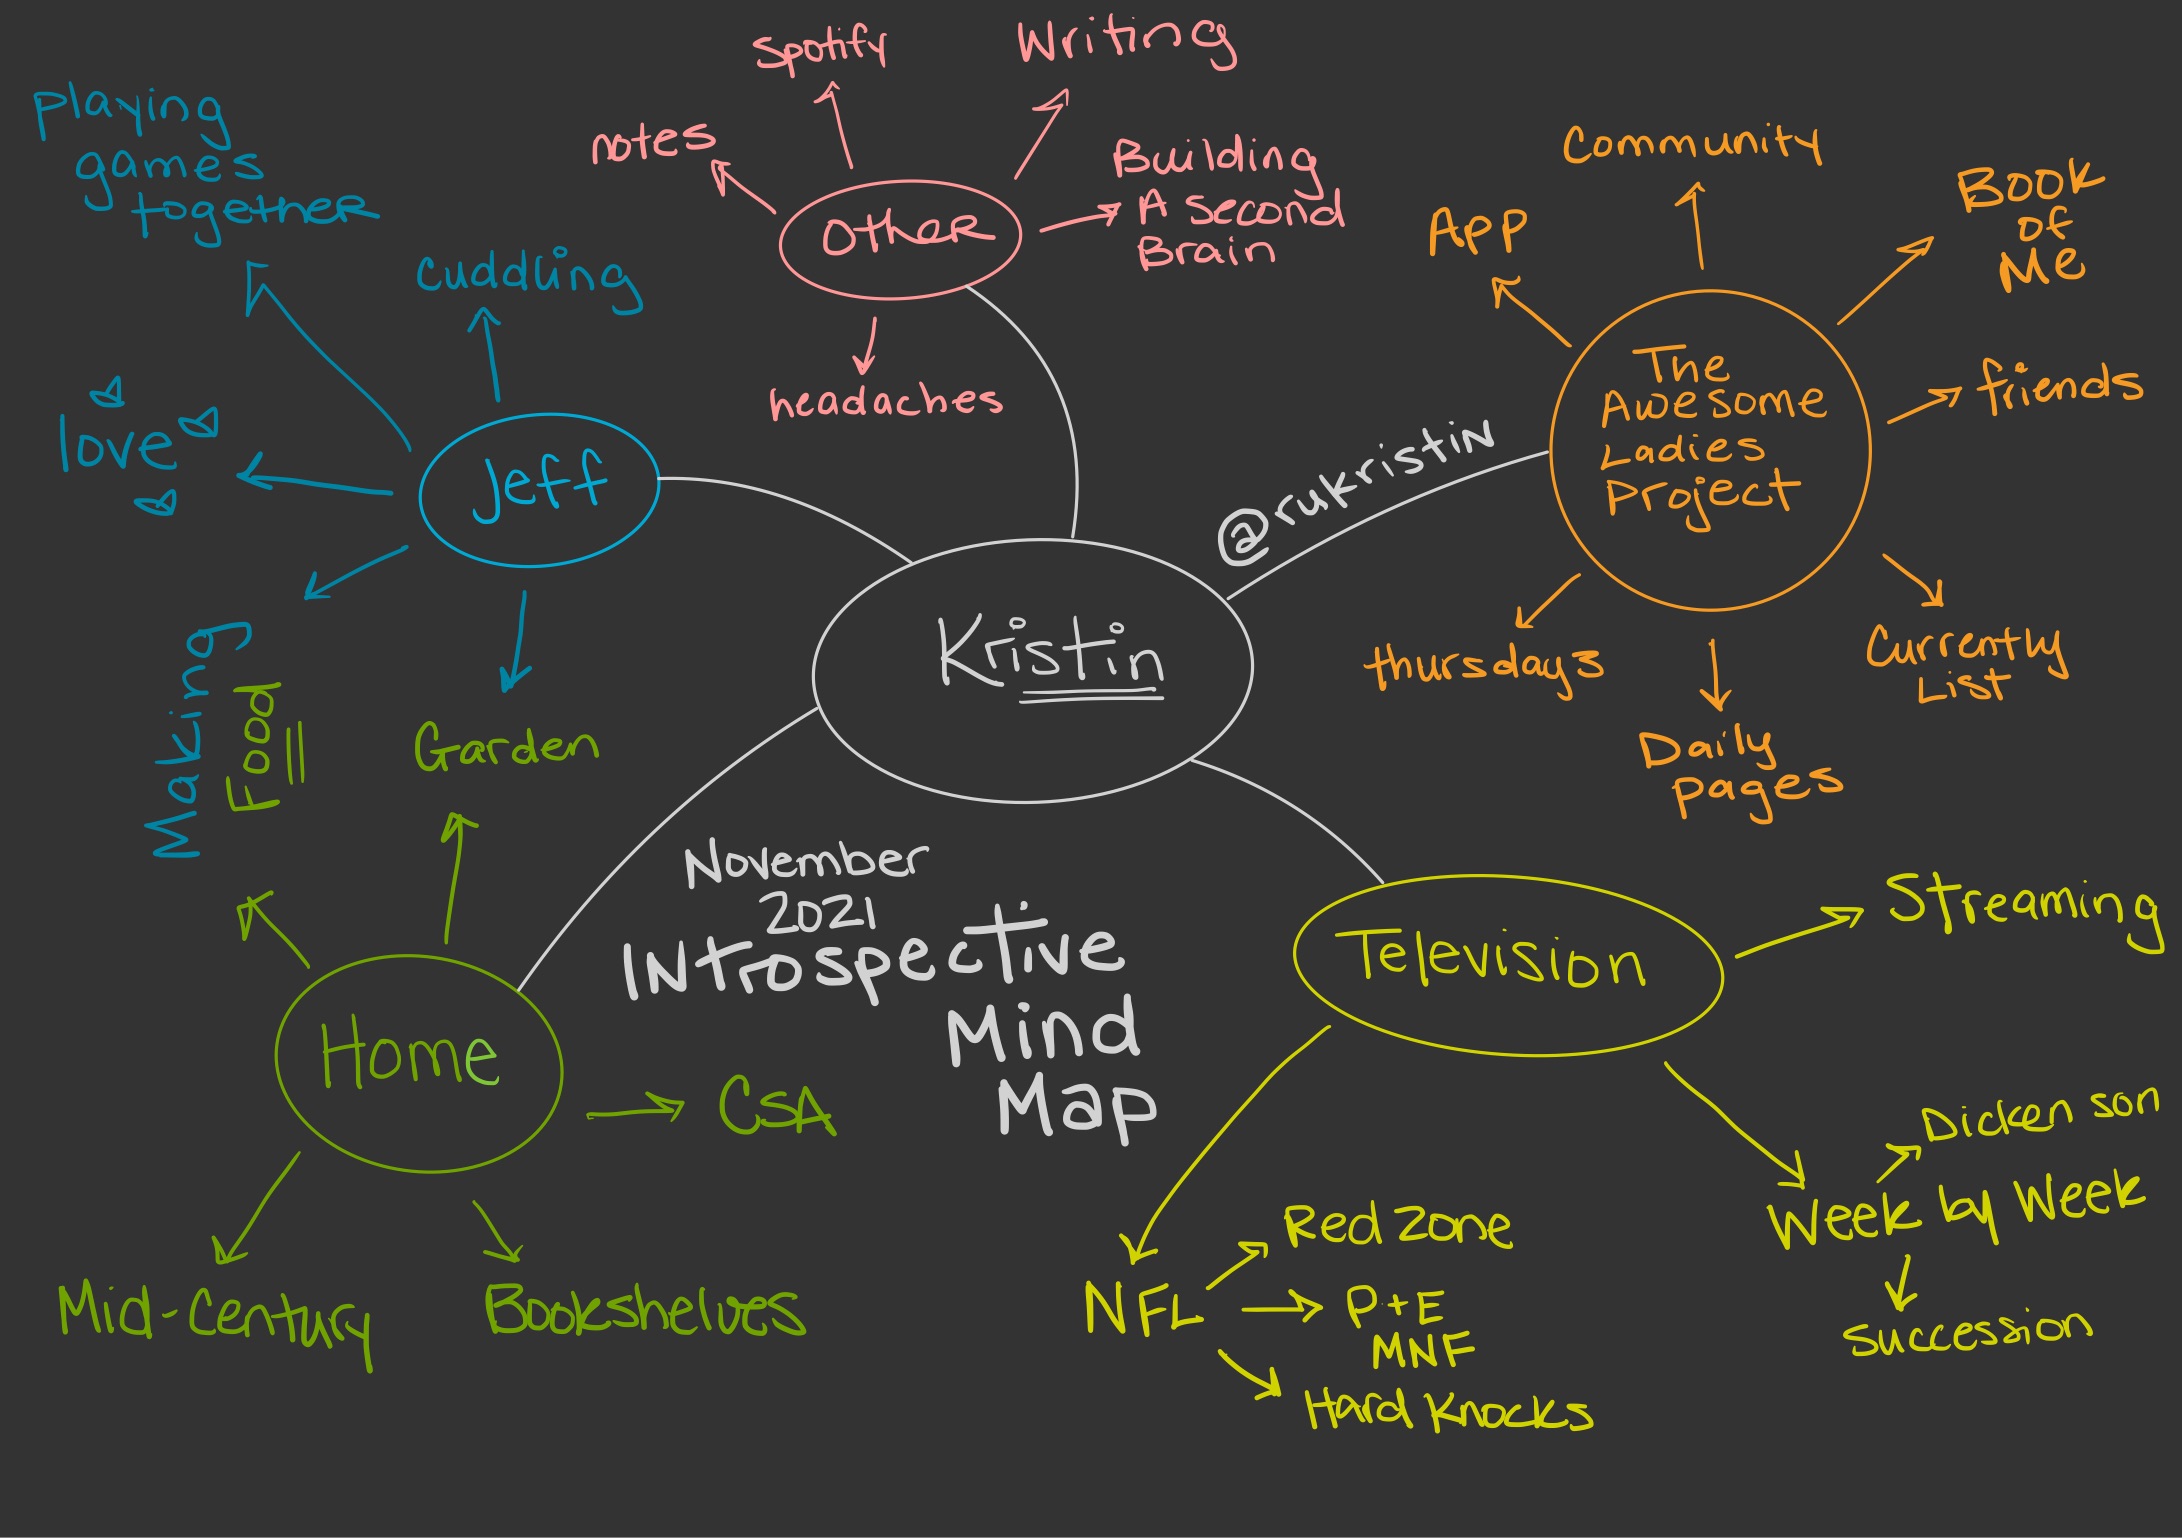 Spotify
Writing
Playing
games
together
notes
Building
A second
Brain
Other
headaches
cuddling
love
Jeff
Making
Food
Garden
Community
App
Book
of
Me
The
Awesome
Ladies
Project
friends
thursdays
Currently
List
Daily
Pages
@rukristin
Kristin
November
2021
Introspective
Mind
Map
Home
CSA
Mid-Century
Bookshelves
Television
Streaming
Dickenson
Week by Week
Succession
NFL
Red Zone
P+E
MNF
Hard Knocks